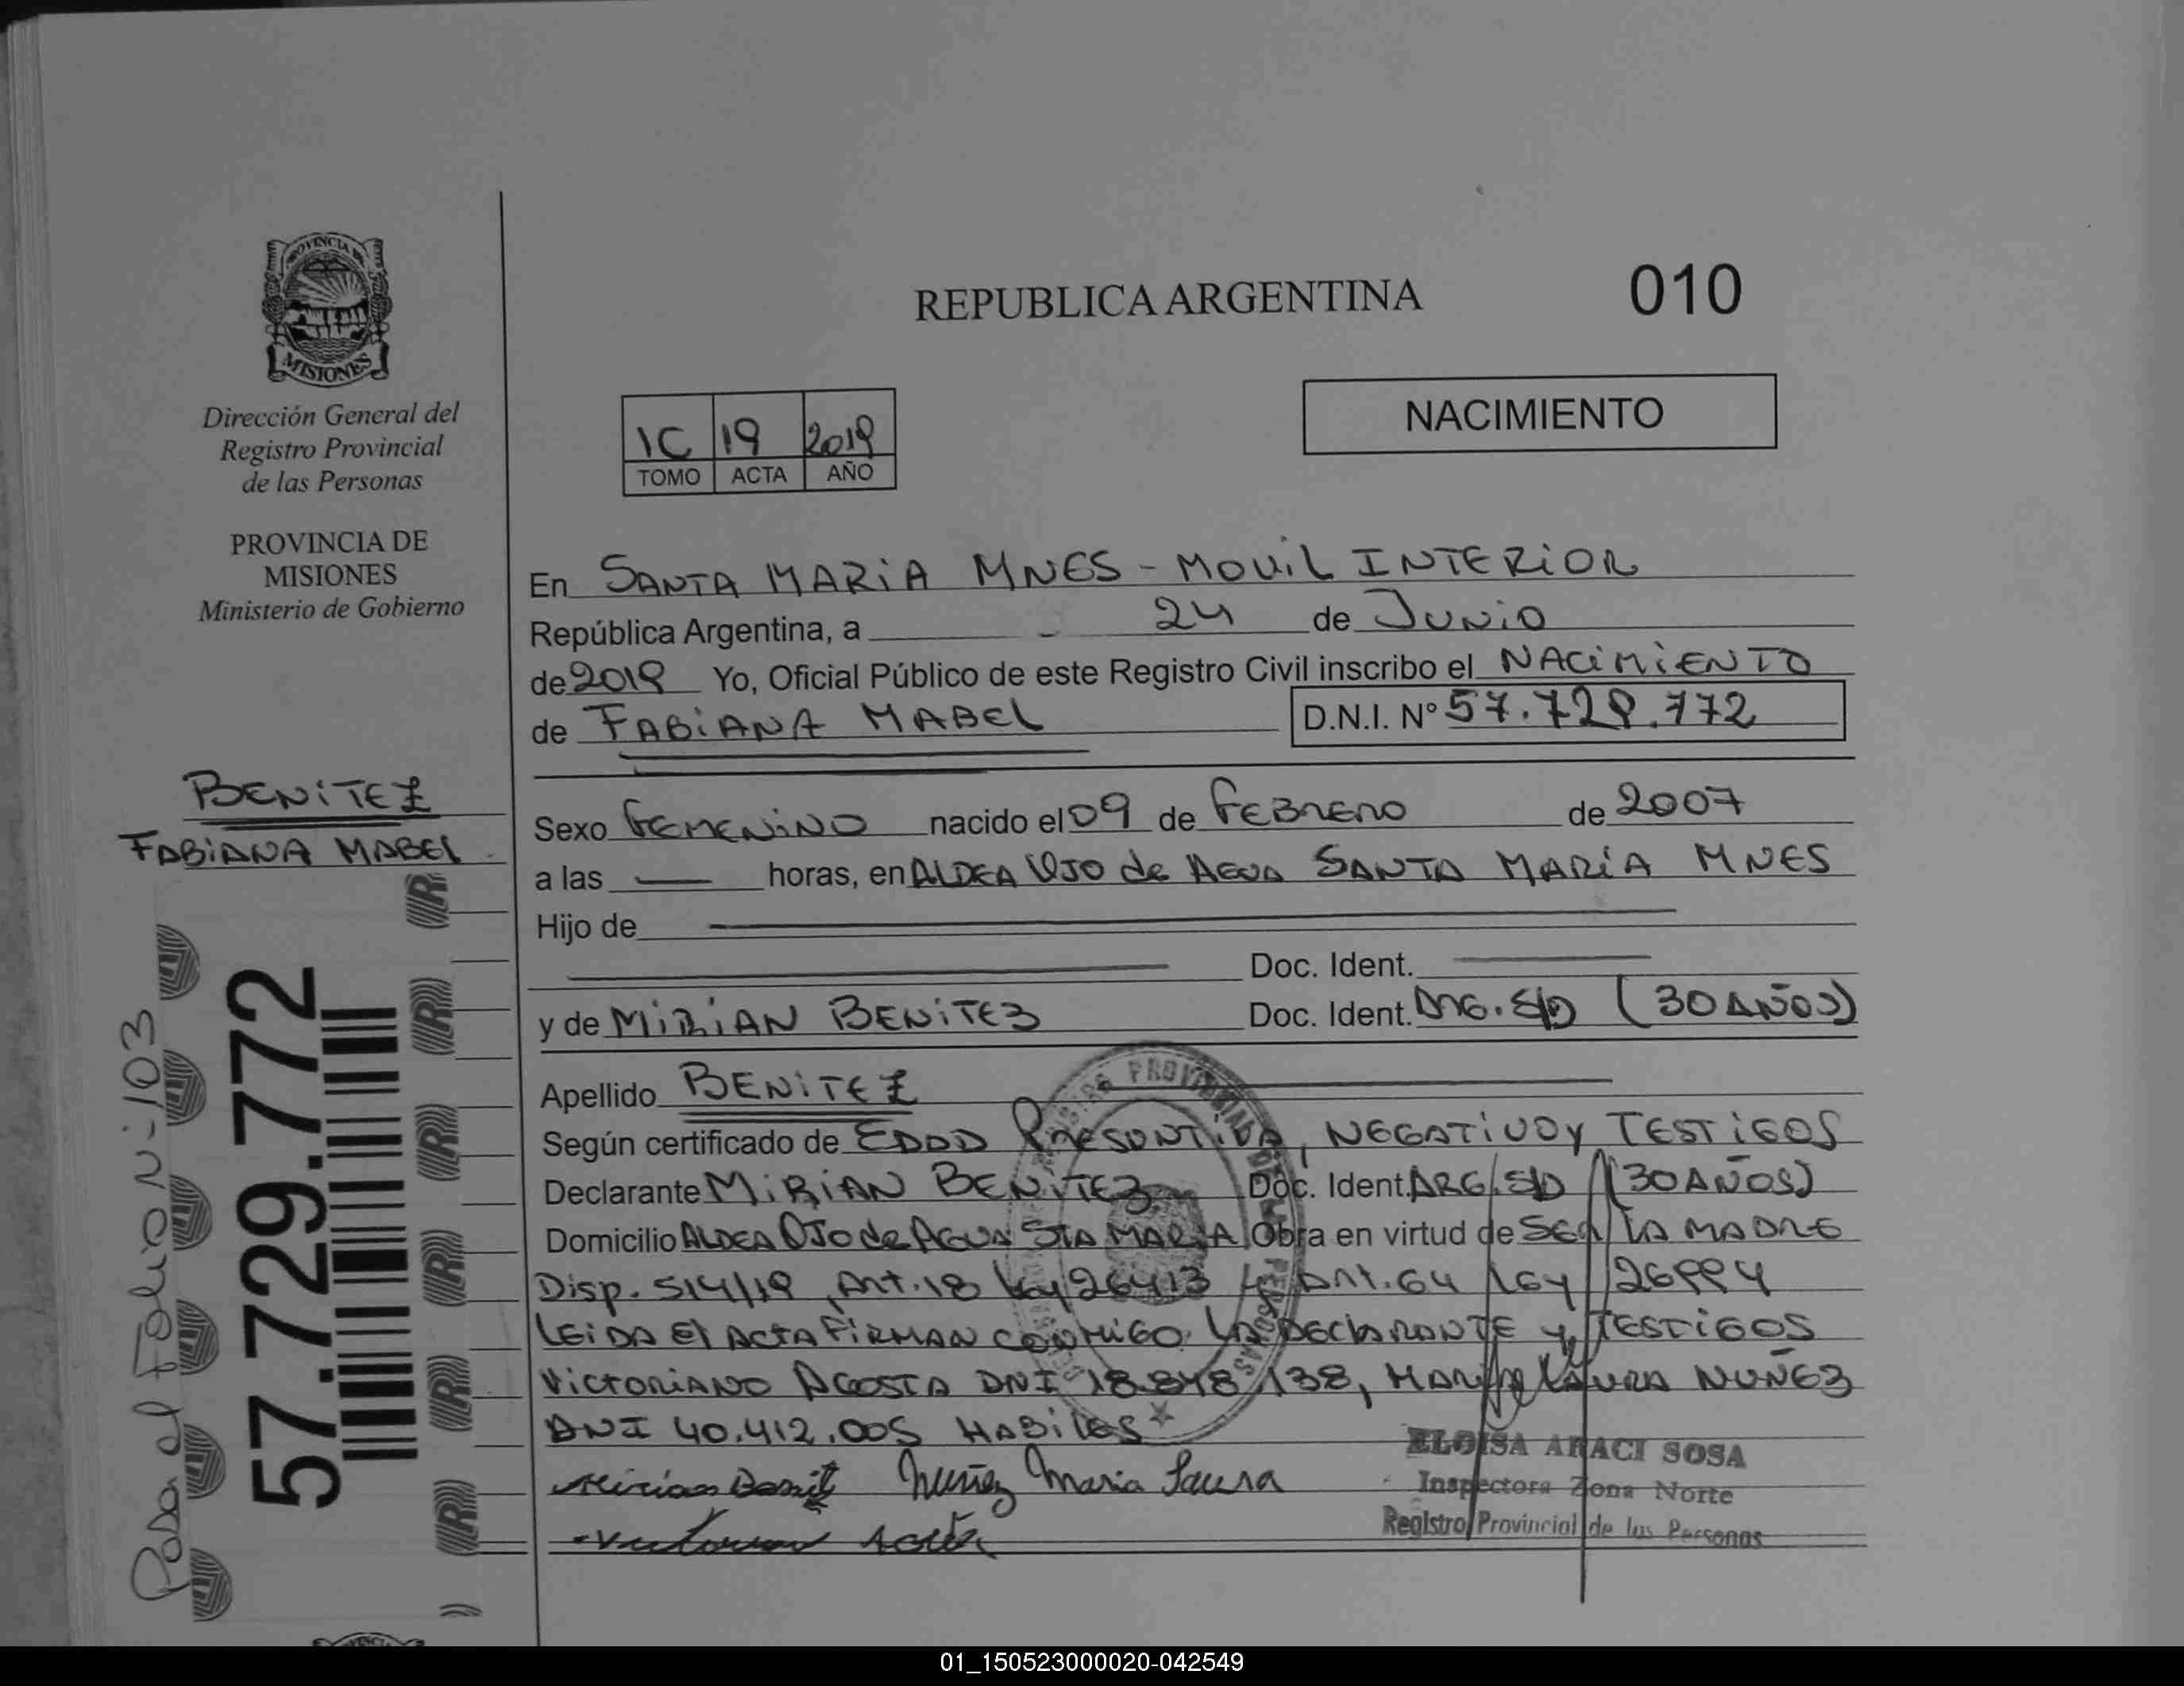 PROVINCIA DE
MISIONES
Dirección General del
Registro Provincial
de las Personas
PROVINCIA DE
MISIONES
Ministerio de Gobierno
BENITEZ
FABIANA MABEL
57.729.772
Pasa al Folio Nº 103
REPUBLICA ARGENTINA
010
NACIMIENTO
1C 19 2019
TOMO ACTA AÑO
En SANTA MARIA MNES - MOVIL INTERIOR
República Argentina, a 24 de JUNIO
de 2019 Yo, Oficial Público de este Registro Civil inscribo el NACIMIENTO
de FABIANA MABEL D.N.I. Nº 57.729.772
Sexo FEMENINO nacido el 09 de FEBRERO de 2007
a las — horas, en ALDEA OJO de AGUA SANTA MARIA MNES
Hijo de
Doc. Ident.
y de MIRIAN BENITEZ Doc. Ident. ARG. S/D (30 AÑOS)
Apellido BENITEZ
Según certificado de EDAD PRESUNTIVA, NEGATIVO Y TESTIGOS
Declarante MIRIAN BENITEZ Doc. Ident. ARG. S/D (30 AÑOS)
Domicilio ALDEA OJO de AGUA STA MARIA Obra en virtud de SER LA MADRE
Disp. 514/19, Art. 18 Ley 26413 Y Art. 64 Ley 26994
LEIDA El ACTA FIRMAN CONMIGO LA DECLARANTE Y TESTIGOS
VICTORIANO ACOSTA DNI 18.848.138, MARIA LAURA NUÑEZ
DNI 40.412.005 HABILES
Nuñez Maria Laura
ELOISA ARACI SOSA
Inspectora Zona Norte
Registro Provincial de las Personas
01_150523000020-042549